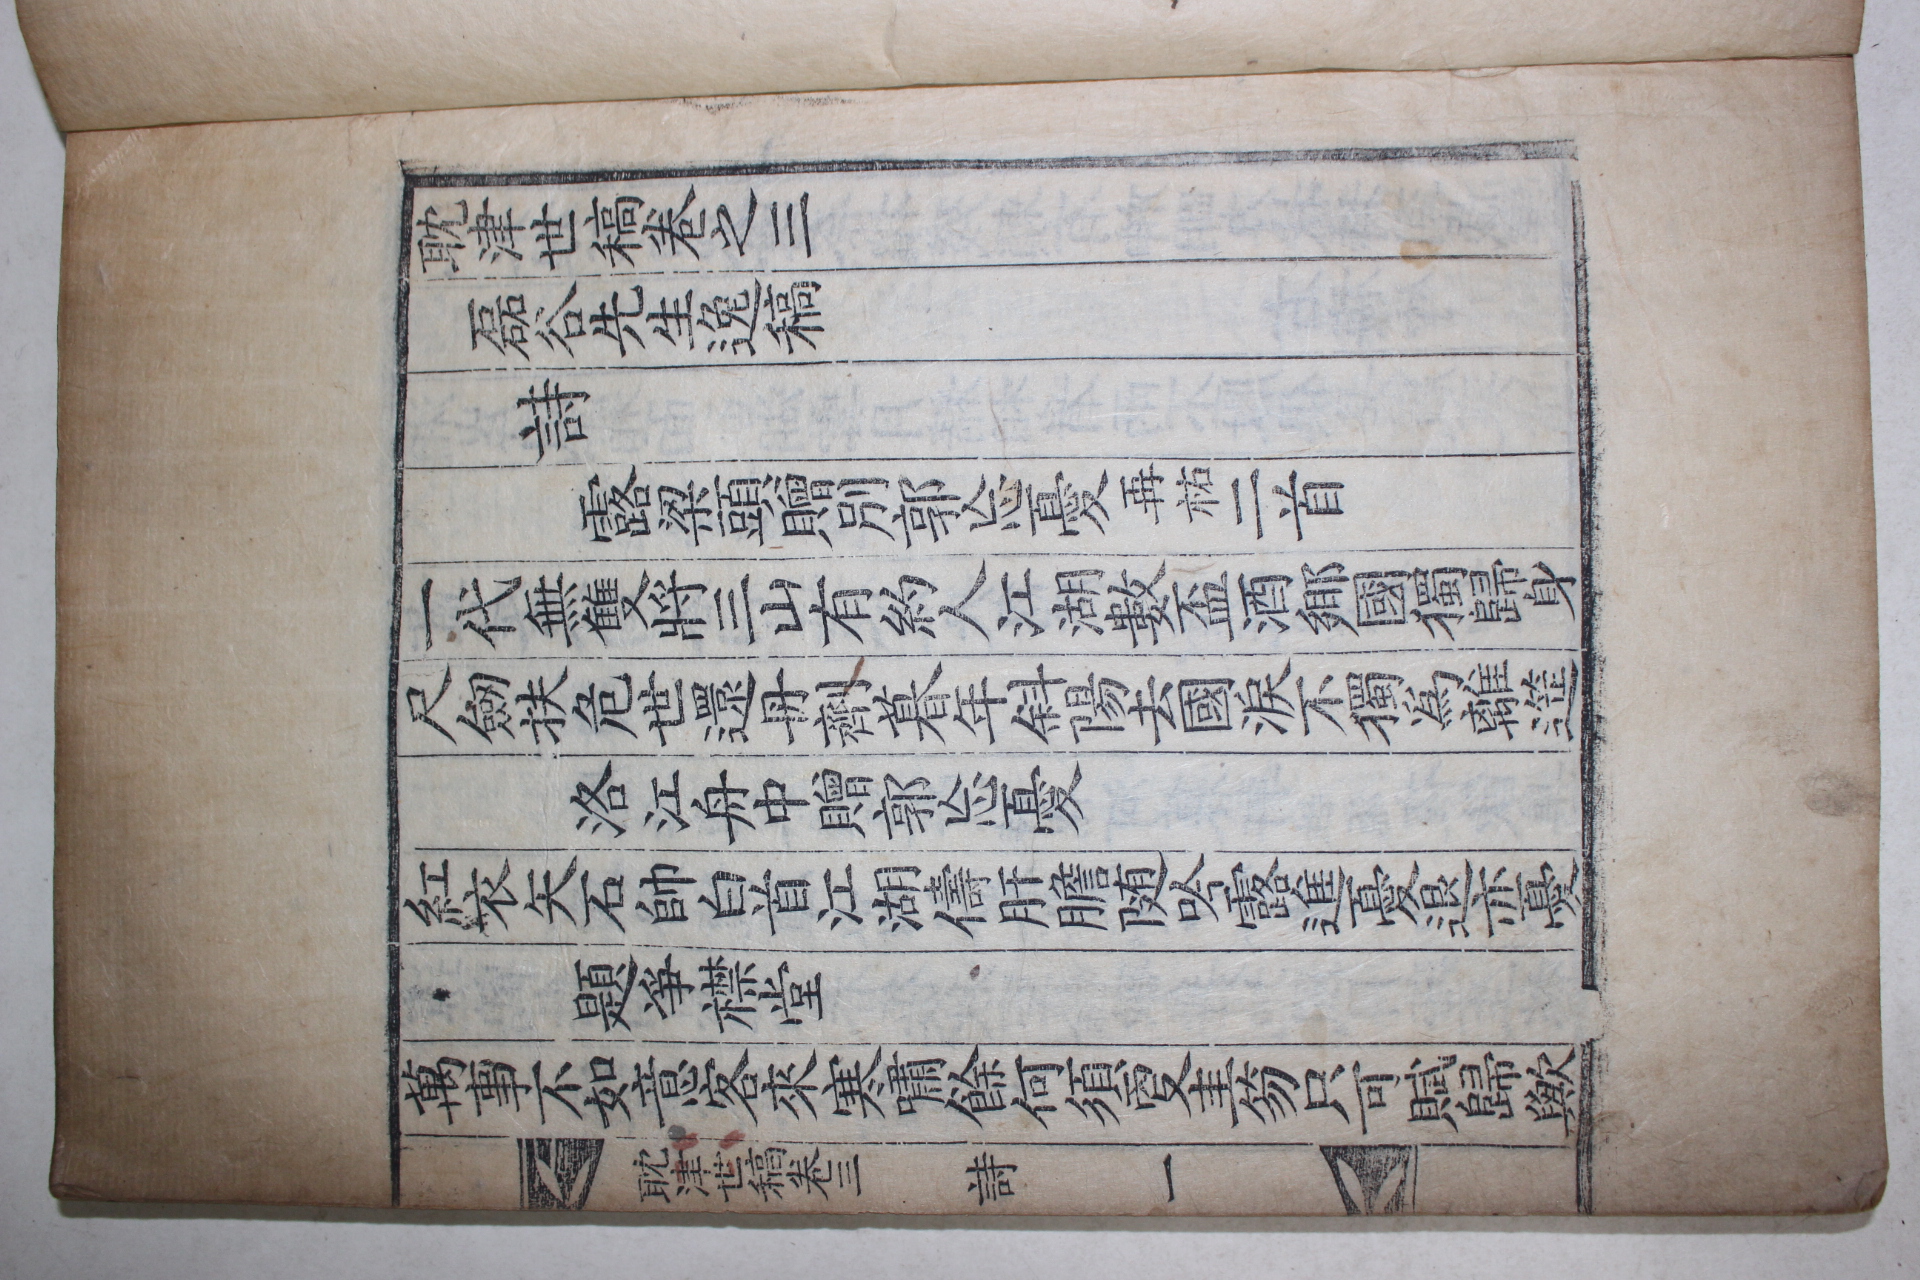 耽津世稿卷之三
磊谷先生逸稿
詩
露梁頭贈別郭忘憂再祐二首
一代無雙將三山有約人江湖數盃酒鄉國獨歸身
尺劒扶危世還丹劑暮年斜陽去國淚不獨爲離筵
洛江舟中贈郭忘憂
紅衣矢石帥白首江湖儔肝膽隨吟露進憂退亦憂
題爭襟堂
萬事不如意客來寒嘯餘何須愛圭笏只可賦歸歟
耽津世稿卷三 詩 一